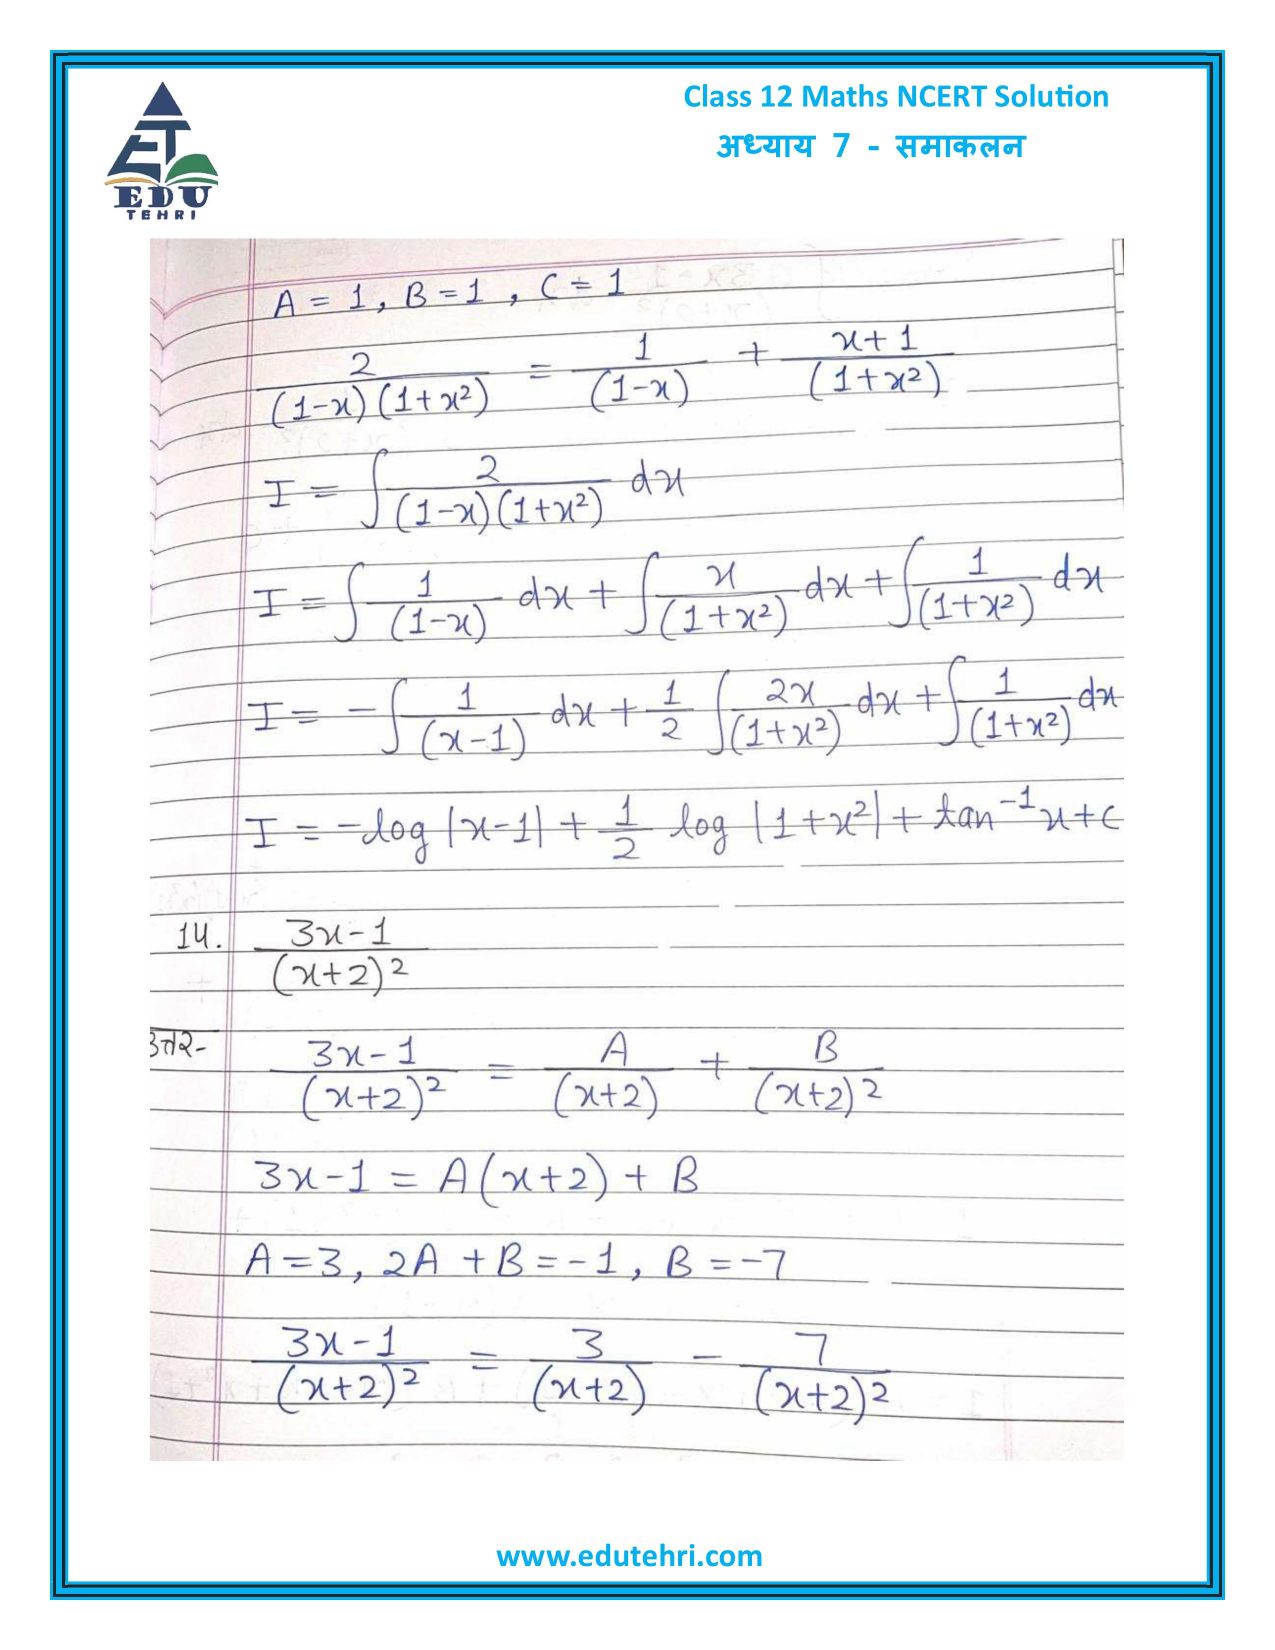 Class 12 Maths NCERT Solution
अध्याय 7 - समाकलन
EDU
TEHRI
A = 1, B = 1, C = 1
2/((1-x)(1+x²)) = 1/(1-x) + (x+1)/(1+x²)
I = ∫ 2/((1-x)(1+x²)) dx
I = ∫ 1/(1-x) dx + ∫ x/(1+x²) dx + ∫ 1/(1+x²) dx
I = -∫ 1/(x-1) dx + 1/2 ∫ 2x/(1+x²) dx + ∫ 1/(1+x²) dx
I = -log|x-1| + 1/2 log|1+x²| + tan⁻¹x + C
14. (3x-1)/(x+2)²
उत्तर- (3x-1)/(x+2)² = A/(x+2) + B/(x+2)²
3x-1 = A(x+2) + B
A = 3, 2A + B = -1, B = -7
(3x-1)/(x+2)² = 3/(x+2) - 7/(x+2)²
www.edutehri.com